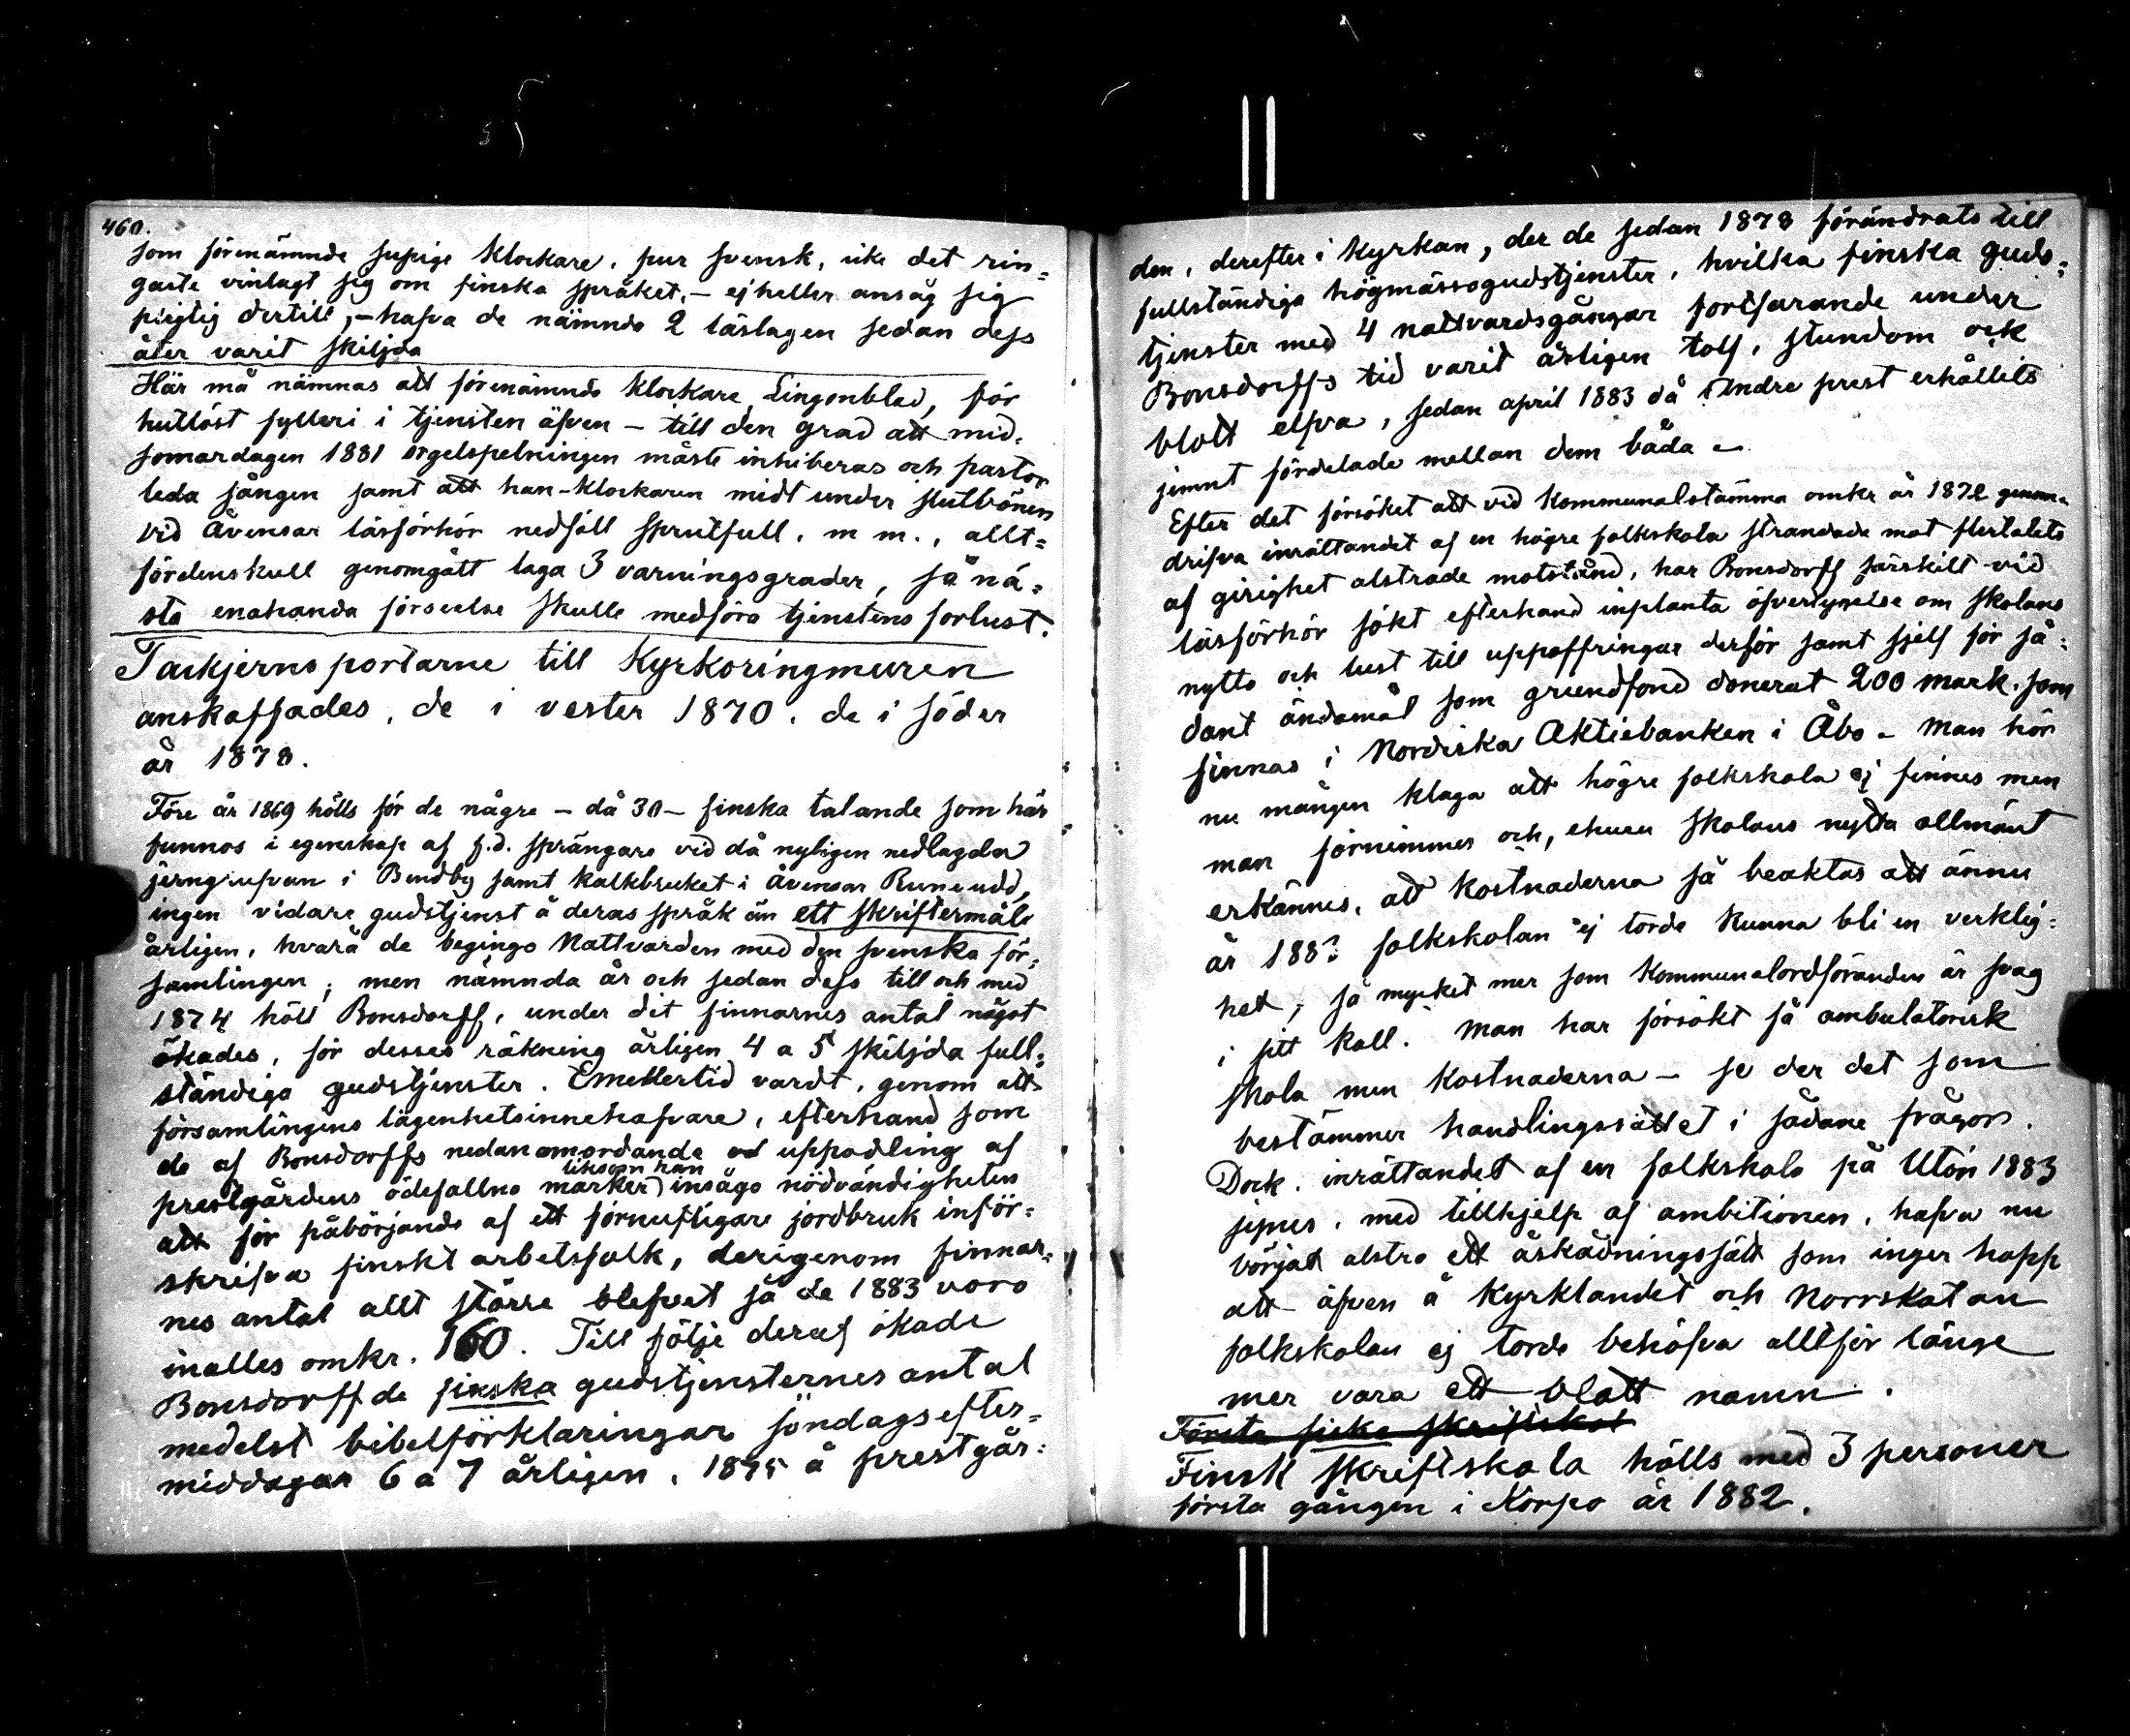 460.
som förenämnde supige klockare, pur svensk, icke det rin=
gaste vinlagt sig om finska språket, – ej heller ansåg sig
pligtig dertill, – hafva de nämnda 2 läslagen sedan dess
åter varit skiljda
Här må nämnas att förenämnde klockare Lingonblad, för
hutlöst fylleri i tjensten äfven – till den grad att mid=
somardagen 1881 orgelspelningen måste inhiberas och pastor
leda sången samt att han – klockaren midt under slutbönen
vid Åvensar läsförhör nedföll sprutfull, m m., allt=
fördenskull genomgått laga 3 varningsgrader, så nä=
sta enahanda förseelse skulle medföra tjenstens förlust.
Tackjerns portarne till Kyrkoringmuren
anskaffades, de i vester 1870, de i söder
år 1878.
Före år 1869 hölls för de några – då 30 – finska talande som här
funnos i egenskap af f.d. sprängare vid då nyligen nedlagda
jerngrufvan i Bendby samt kalkbruket i Åvensar Runeudd,
ingen vidare gudstjenst å deras språk än ett skriftermål
årligen, hvarå de begingo Nattvarden med den svenska för=
samlingen; men nämnda år och sedan dess till och med
1874 höll Bonsdorff, under det finnarnes antal något
ökades, för desses räkning årligen 4 a 5 skiljda full=
ständiga gudstjenster. Emellertid vardt, genom att
församlingens lägenhetsinnehafvare, efterhand som
de af Bonsdorffs nedan omordande uppodling af
liksom han
prestgårdens ödefallna marker insågo nödvändigheten
att för påbörjande af ett förnuftigare jordbruk inför=
skrifva finskt arbetsfolk, derigenom finnar=
nes antal allt större blefvet så de 1883 voro
inalles omkr. 160. Till följe deraf ökade
Bonsdorff de finska gudstjensternes antal
medelst bibelförklaringar söndagsefter=
middagar 6 a 7 årligen, 1875 å prestgår=
den, derefter i kyrkan, der de sedan 1878 förändrats till
fullständiga högmässogudstjenster, hvilka finska guds=
tjenster med 4 nattvardsgångar fortfarande under
Bonsdorffs tid varit årligen tolf, stundom ock
blott elfva, sedan april 1883 då andre prest erhållits
jemnt fördelade mellan dem båda –
Efter det försöket att vid Kommunalstämma omkr år 1872 genom=
drifva inrättandet af en högre folkskola strandade mot flertalets
af girighet alstrade motstånd, har Bonsdorff särskilt vid
läsförhör sökt efterhand inplanta öfvertygelse om skolans
nytta och lust till uppoffringar derför samt sjelf för så=
dant ändamål som grundfond donerat 200 mark, som
finnas i Nordiska Aktiebanken i Åbo – Man hör
nu mången klaga att högre folkskola ej finnes men
man förnimmer och, ehuru skolans nytta allmänt
erkännes, att kostnaderna så beaktas att ännu
år 188? folkskolan ej torde kunna bli en verklig=
het, så mycket mer som Kommunalordföranden är svag
i sitt kall. Man har försökt få ambulatorisk
skola men kostnaderna – se der det som
bestämmer handlingssättet i sådana frågor.
Dock, inrättandet af en folkskola på Utön 1883
synes, med tillhjelp af ambitionen, hafva nu
börjat alstra ett åskådningssätt som inger hopp
att äfven å Kyrklandet och Norrskatan
folkskolan ej torde behöfva alltför länge
mer vara ett blott namn.
Första finska skriftskol
Finsk skriftskola hölls med 3 personer
första gången i Korpo år 1882.